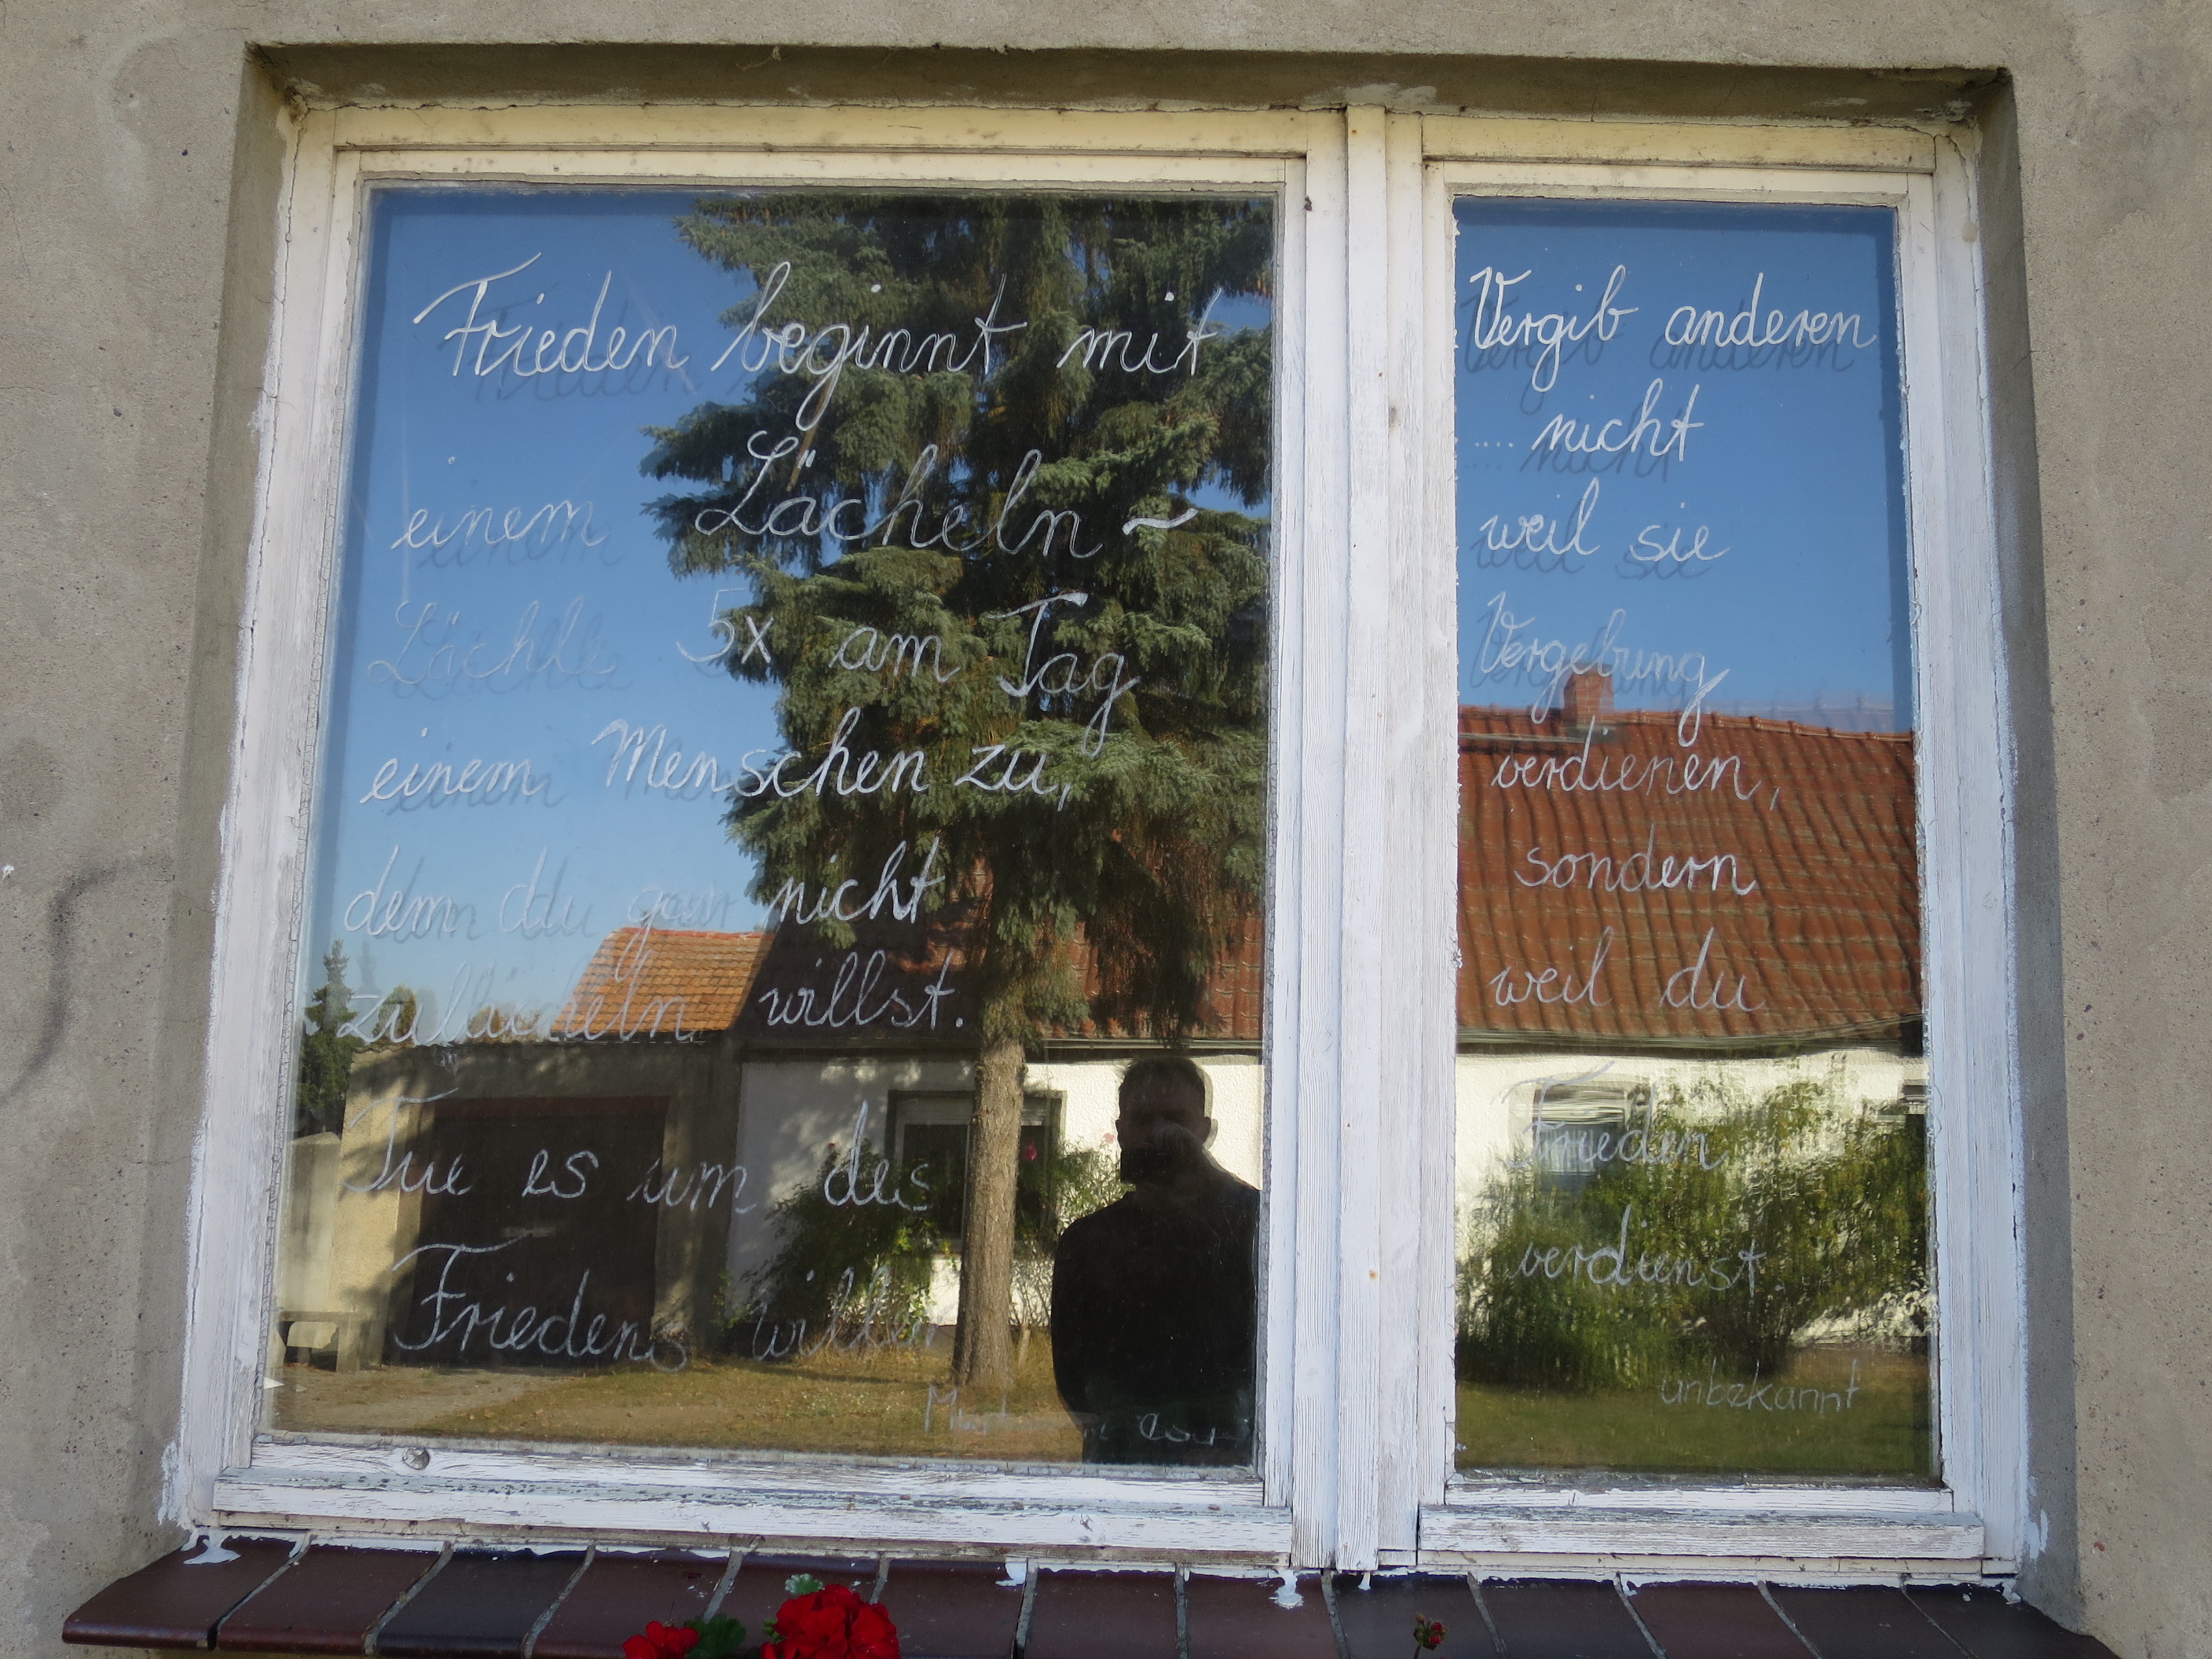 Frieden beginnt mit
einem Lächeln ~
Lächle 5x am Tag
einem Menschen zu,
dem du gar nicht
zulächeln willst.
Tue es um des
Friedens willen
Vergib anderen
.... nicht
weil sie
Vergebung
verdienen,
sondern
weil du
Frieden
verdienst.
unbekannt